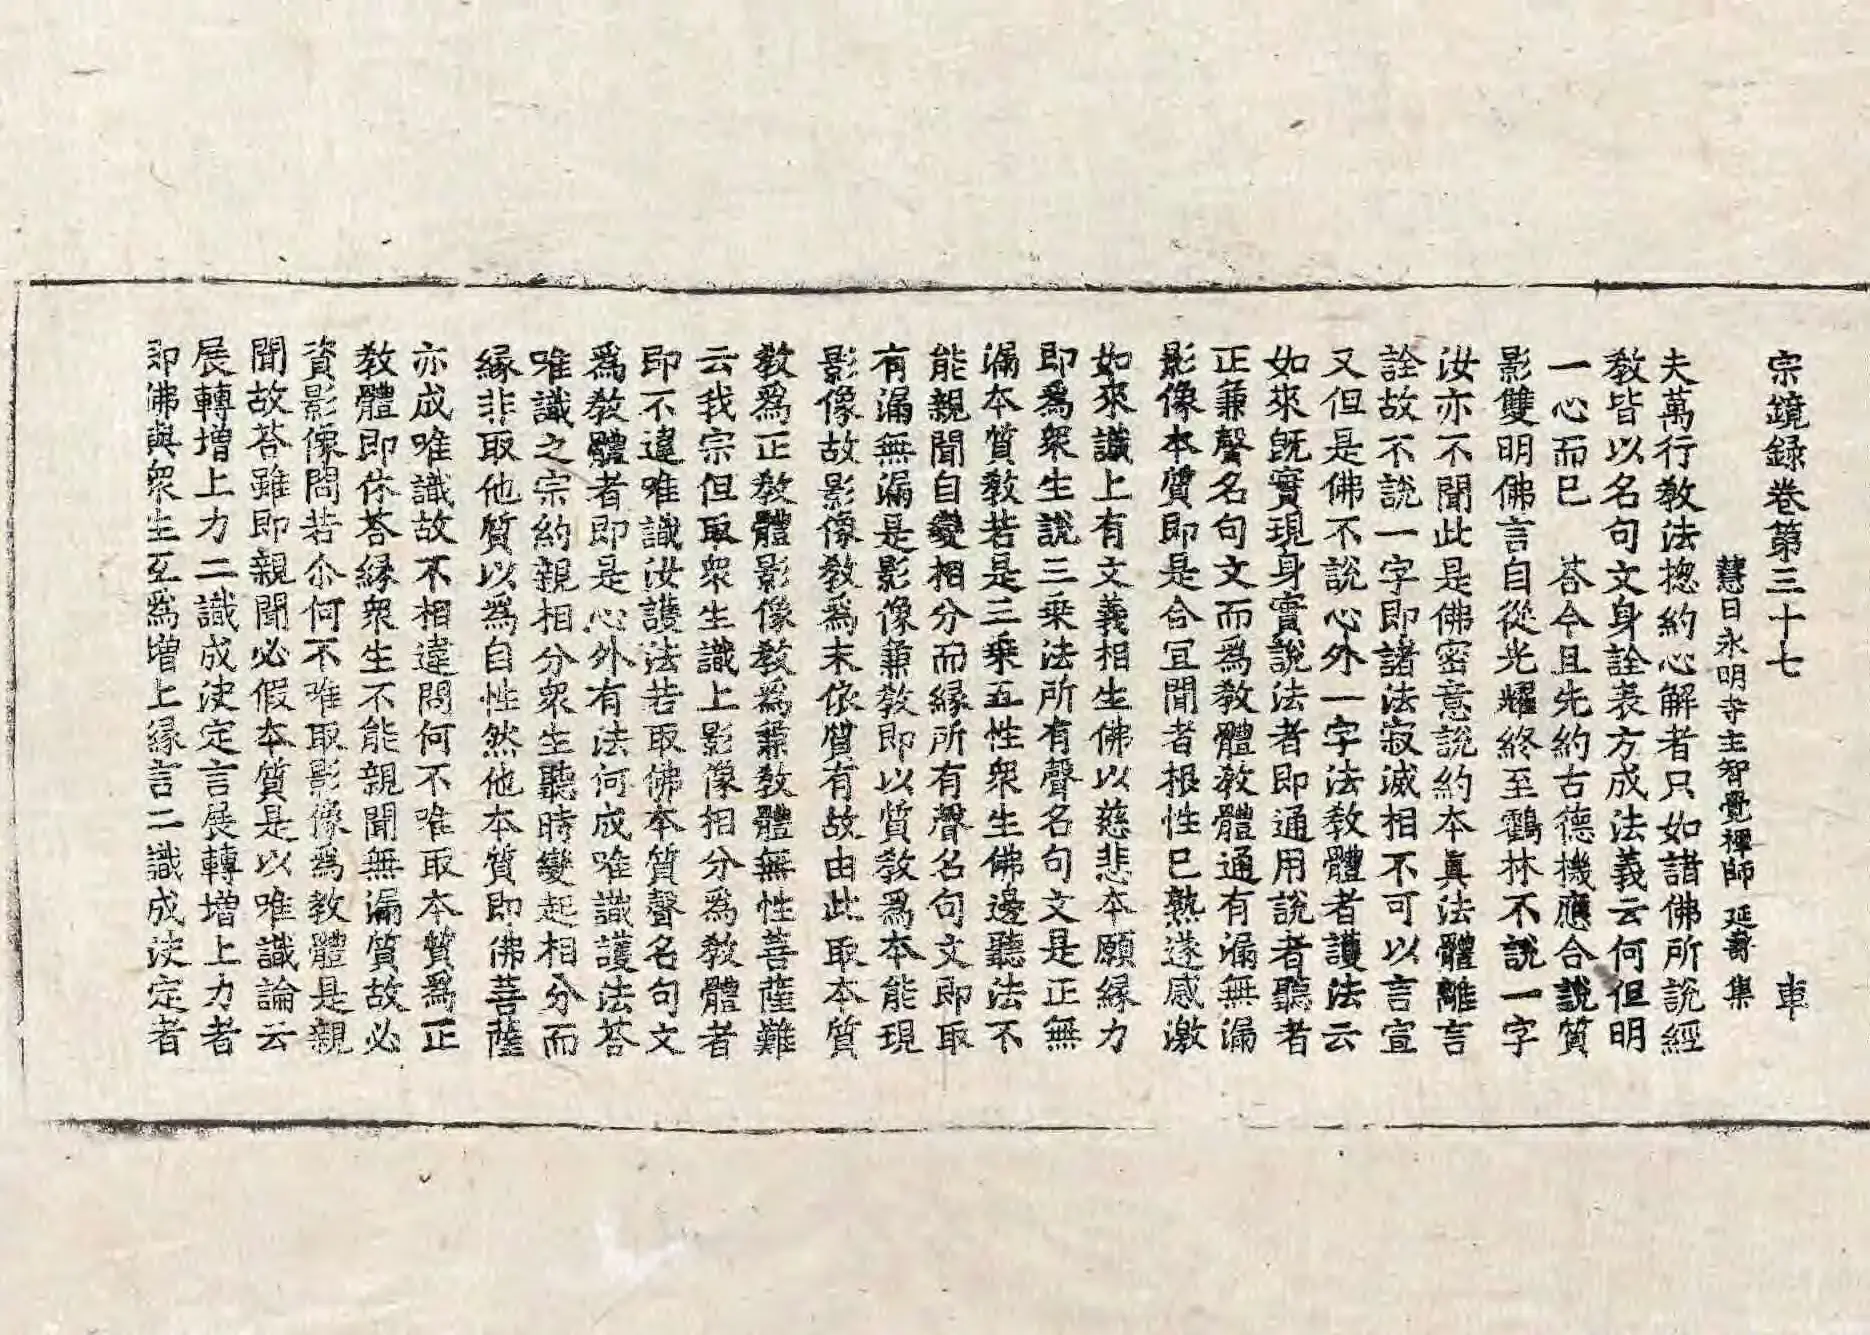 宗鏡錄卷第三十七 車
慧日永明寺主智覺禪師 延壽 集
夫萬行教法揔約心解者只如諸佛所說經
教皆以名句文身詮表方成法義云何但明
一心而已 荅今且先約古德機應合說質
影雙明佛言自從光耀終至鶴林不說一字
汝亦不聞此是佛密意說約本真法體離言
詮故不說一字即諸法寂滅相不可以言宣
又但是佛不說心外一字法教體者護法云
如來旣實現身實說法者即通用說者聽者
正兼聲名句文而爲教體教體通有漏無漏
影像本質即是合宜聞者根性已熟遂感激
如來識上有文義相生佛以慈悲本願緣力
即爲衆生說三乗法所有聲名句文是正無
漏本質教若是三乗五性衆生佛邊聽法不
能親聞自變相分而緣所有聲名句文即取
有漏無漏是影像兼教即以質教爲本能現
影像故影像教爲末依質有故由此取本質
教爲正教體影像教爲兼教體無性菩薩難
云我宗但取衆生識上影像相分爲教體者
即不違唯識汝護法若取佛本質聲名句文
爲教體者即是心外有法何成唯識護法荅
唯識之宗約親相分衆生聽時變起相分而
緣非取他質以爲自性然他本質即佛菩薩
亦成唯識故不相違問何不唯取本質爲正
教體即休荅緣衆生不能親聞無漏質故必
資影像問若尒何不唯取影像爲教體是親
聞故荅雖即親聞必假本質是以唯識論云
展轉增上力二識成決定言展轉增上力者
即佛與衆生互爲增上緣言二識成決定者